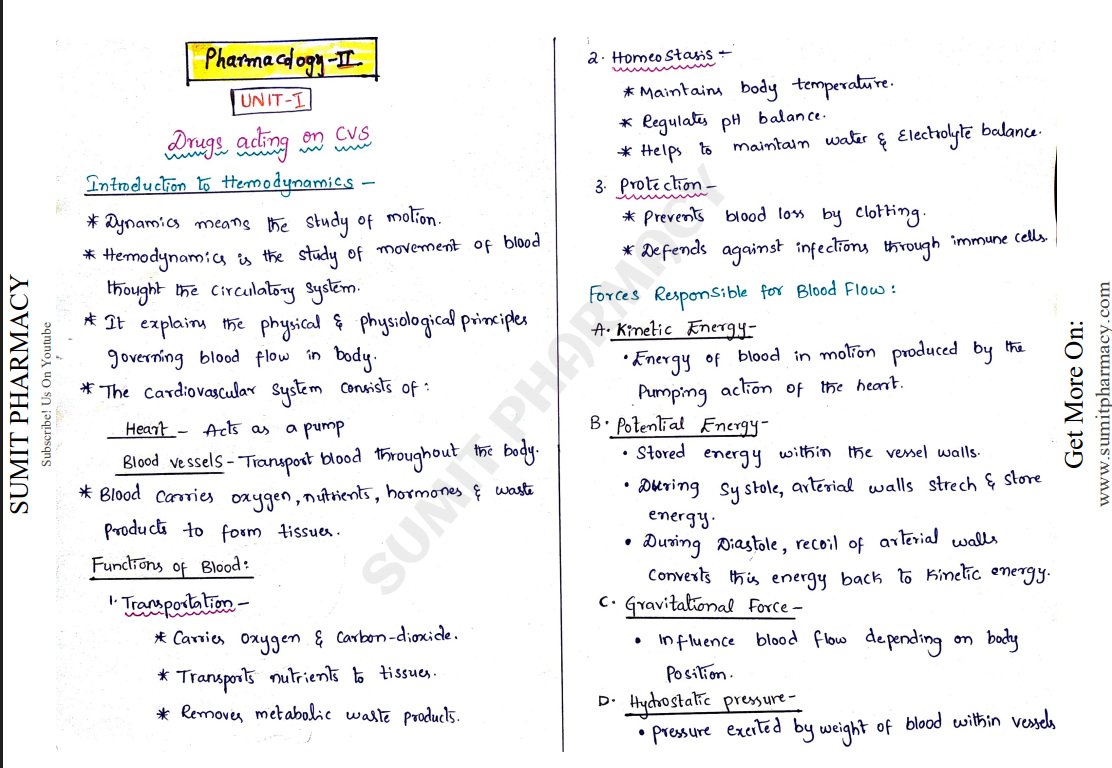 Pharmacology-II
UNIT-I
Drugs acting on CVS
Introduction to Hemodynamics -
* Dynamics means the study of motion.
* Hemodynamics is the study of movement of blood
thought the circulatory system.
* It explains the physical & physiological principles
governing blood flow in body.
* The cardiovascular system consists of :
Heart - Acts as a pump
Blood vessels - Transport blood throughout the body.
* Blood carries oxygen, nutrients, hormones & waste
products to form tissues.
Functions of Blood:
1. Transportation -
* Carries oxygen & carbon-dioxide.
* Transports nutrients to tissues.
* Removes metabolic waste products.
2. Homeostasis -
* Maintains body temperature.
* Regulates pH balance.
* Helps to maintain water & Electrolyte balance.
3. Protection -
* Prevents blood loss by clotting.
* Defends against infections through immune cells.
Forces Responsible for Blood Flow :
A. Kinetic Energy -
• Energy of blood in motion produced by the
Pumping action of the heart.
B. Potential Energy -
• Stored energy within the vessel walls.
• During Systole, arterial walls strech & store
energy.
• During Diastole, recoil of arterial walls
converts this energy back to kinetic energy.
C. Gravitational Force -
• Influence blood flow depending on body
Position.
D. Hydrostatic pressure -
• Pressure exerted by weight of blood within vessels
SUMIT PHARMACY
Subscribe! Us On Youtube
SUMIT PHARMACY
Get More On:
www.sumitpharmacy.com